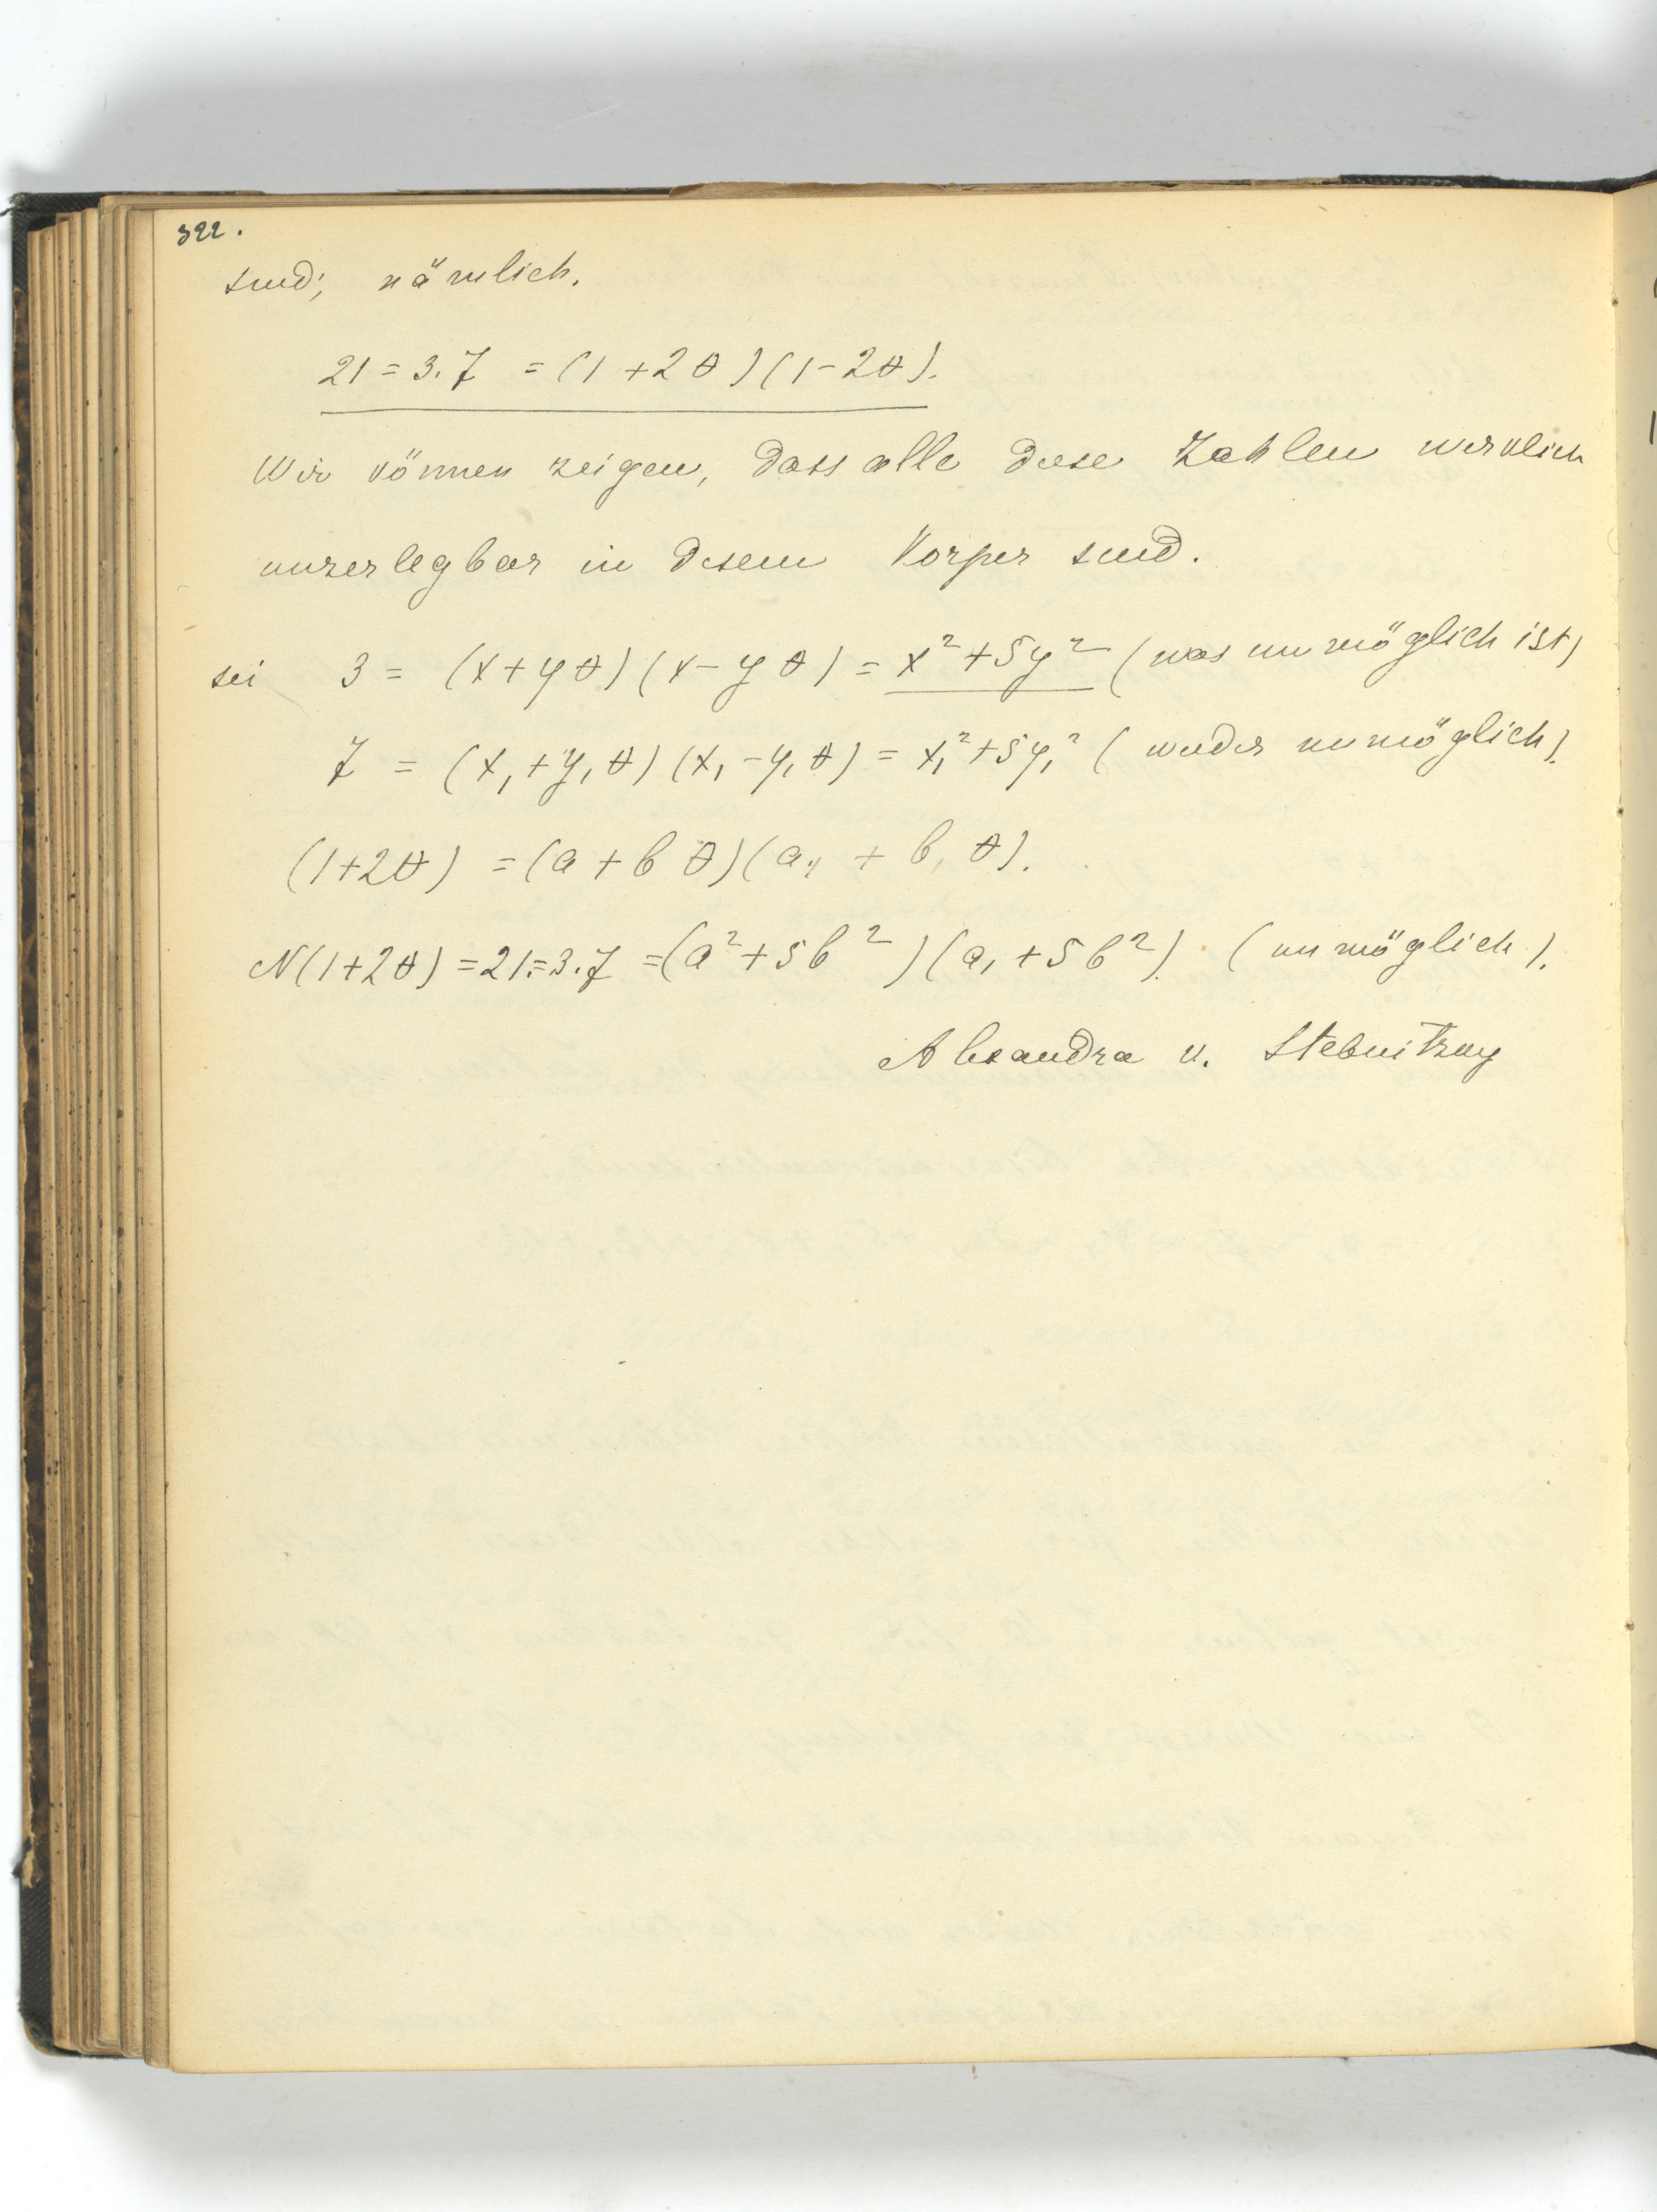 322.
sind; nämlich.
21 = 3.7 = (1 + 2θ)(1 - 2θ).
Wir können zeigen, dass alle diese Zahlen wirklich
unzerlegbar in diesem Körper sind.
sei 3 = (x + yθ)(x - yθ) = x² + 5y² (was unmöglich ist)
7 = (x₁ + y₁θ)(x₁ - y₁θ) = x₁² + 5y₁² (wieder unmöglich).
(1+2θ) = (a + bθ)(a₁ + b₁θ).
N(1+2θ) = 21 = 3.7 = (a² + 5b²)(a₁ + 5b²). (unmöglich).
Alexandra v. Stebnitzky